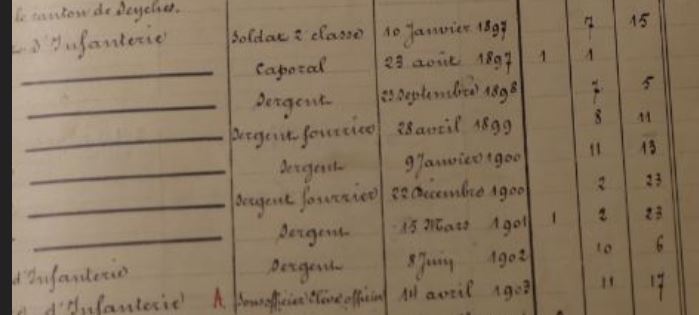 le canton de Seyches.
d'Infanterie Soldat 2 classe 10 Janvier 1897 7 15
Caporal 23 août 1897 1 1
Sergent 23 Septembre 1898 7 5
Sergent fourrier 28 avril 1899 8 11
Sergent 9 Janvier 1900 11 13
Sergent fourrier 22 Décembre 1900 2 23
Sergent 15 Mars 1901 1 2 23
d'Infanterie Sergent 8 Juin 1902 10 6
d'Infanterie A Sousofficier élève officier 14 avril 1903 11 17